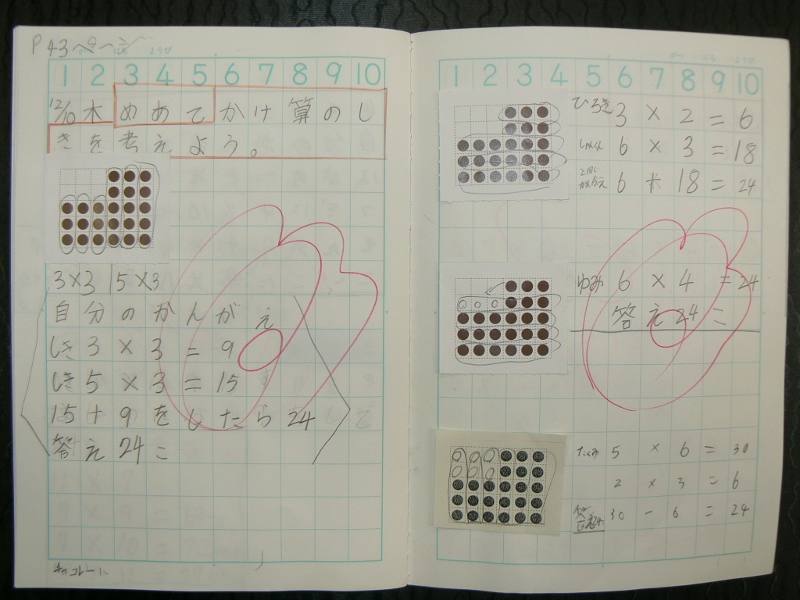 P43ページ
1 2 3 4 5 6 7 8 9 10
12/10 木 めあて かけ算のし
きを考えよう。
3×3 5×3
自分のかんがえ
しき3×3=9
しき5×3=15
15+9をしたら24
答え24こ
チョコレート
1 2 3 4 5 6 7 8 9 10
ひろき 3×2=6
6×3=18
6+18=24
ゆみ 6×4=24
答え24こ
たくみ 5×6=30
2×3=6
30-6=24